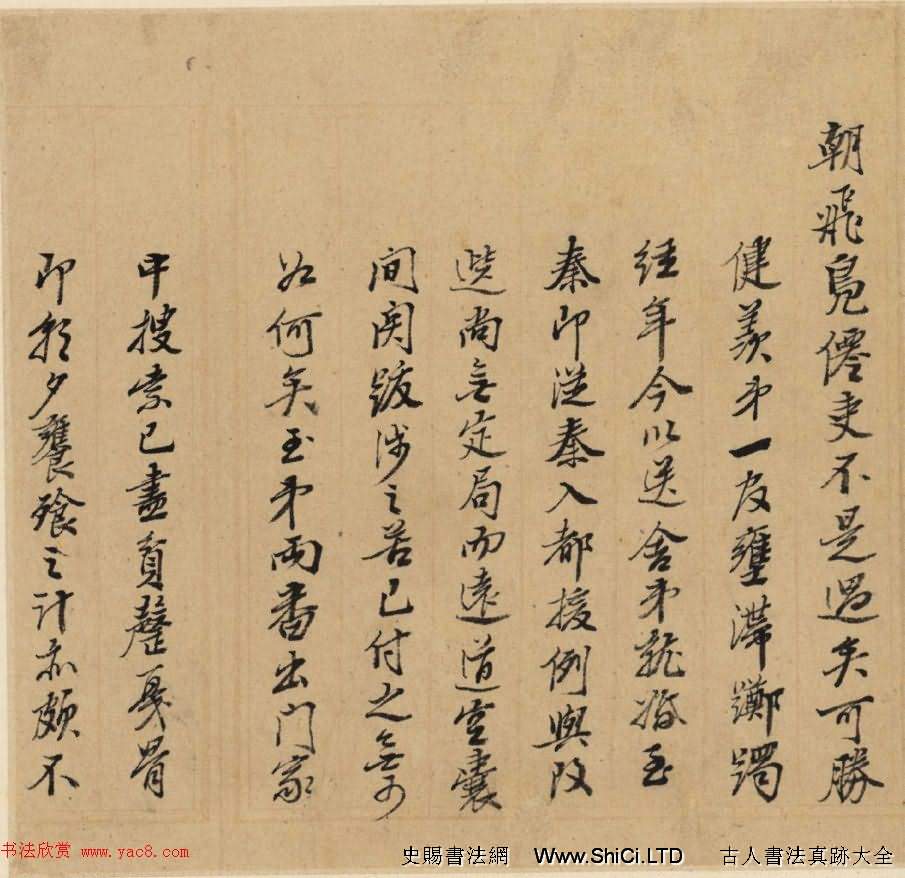 朝飛鳧僊吏不是過矣可勝
健羨弟一官壅滯躑躅
經年今以送舍弟就婚至
秦即從秦入都援例與改
選尚無定局而遠道空囊
間関跋涉之苦已付之無可
如何矣至弟兩番出門家
中搜索已盡貧罄戛骨
即朝夕饔飱之計亦頗不
书法欣赏 www.yac8.com
史賜書法網 Www.ShiCi.LTD 古人書法真跡大全